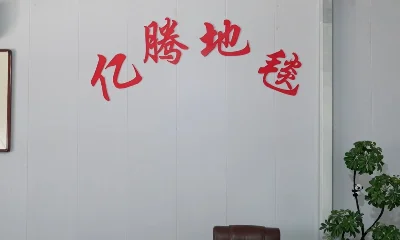 亿腾地毯